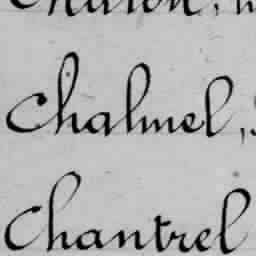 Chalmel,
Chantrel